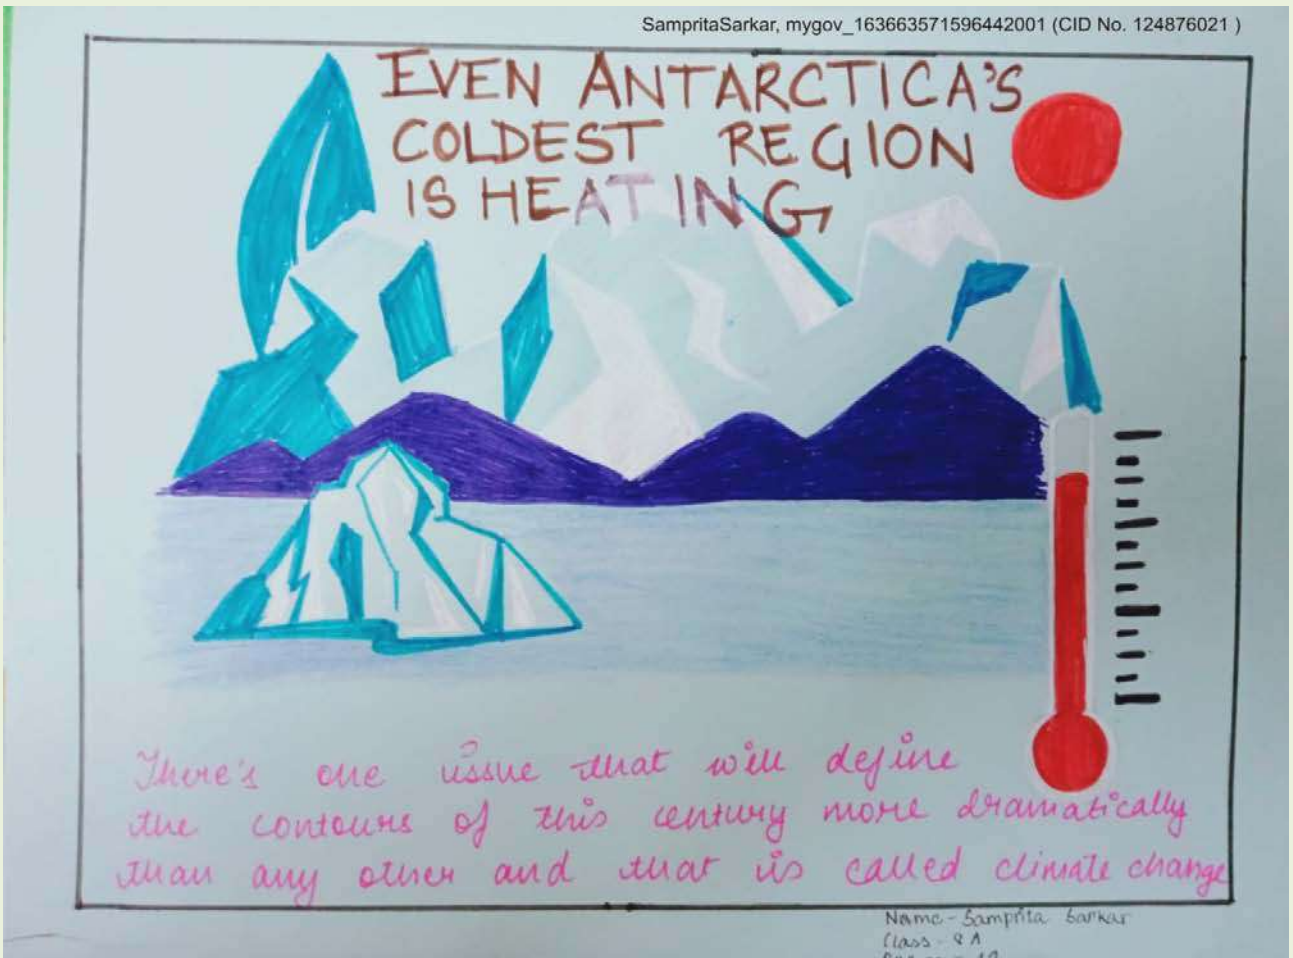 SampritaSarkar, mygov_163663571596442001 (CID No. 124876021 )
EVEN ANTARCTICA'S
COLDEST REGION
IS HEATING
There's one issue that will define
the contours of this century more dramatically
than any other and that is called climate change
Name - Samprita Sarkar
Class - 8 A